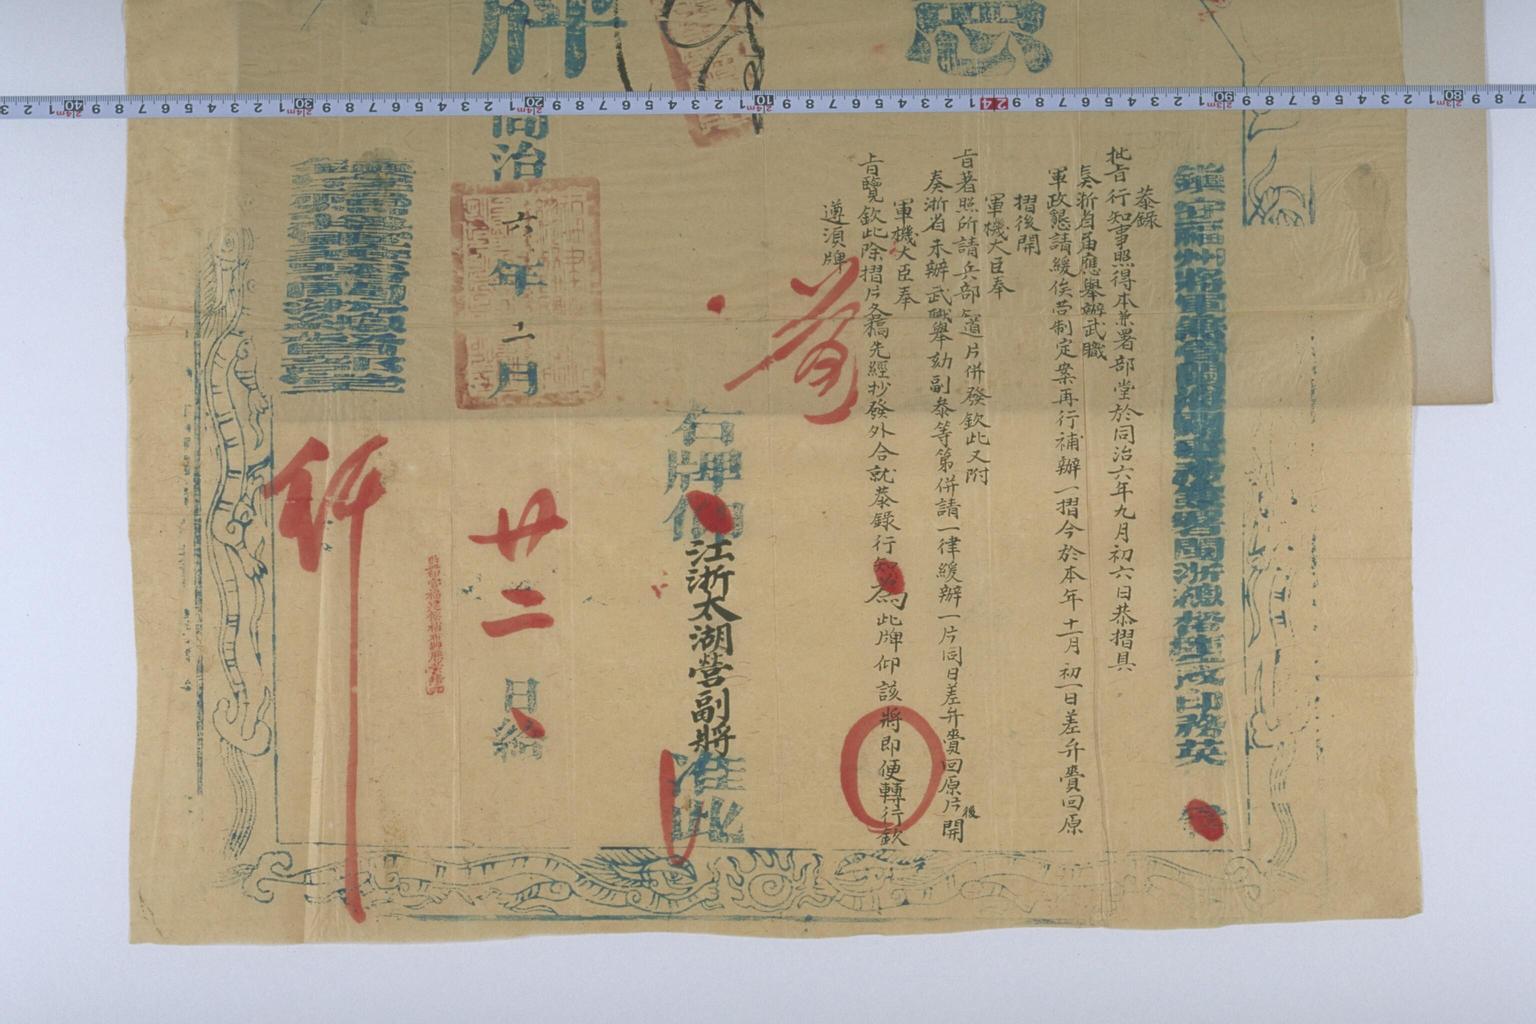 憲
牌
鎮守福州將軍兼管閩海關印務兼署閩浙總督篆庄成印務英 為
恭錄
批旨行知事照得本兼署部堂於同治六年九月初六日恭摺具
奏浙省届應舉辦武職
軍政懇請緩俟营制定案再行補辦一摺今於本年十一月初一日差弁賫回原
摺後開
軍機大臣奉
旨著照所請兵部知道片併發欽此又附
奏浙省未辦武職舉劾副叅等第併請一律緩辦一片同日差弁賫回原片後開
軍機大臣奉
旨覽欽此除摺片各稿先經抄發外合就恭錄行知為此牌仰該將即便轉行欽
遵須牌
右牌仰江浙太湖營副將准此
同治六年十一月廿二日給